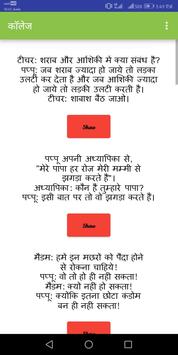 5:49 PM
कॉलेज
टीचर: शराब और आशिकी में क्या संबंध है?
पप्पू: जब शराब ज्यादा हो जाये तो लड़का
उलटी कर देता है और जब आशिकी ज्यादा
हो जाये तो लड़की उलटी करती है।
टीचर: शाबाश बैठ जाओ।
Share
पप्पू अपनी अध्यापिका से,
"मेरे पापा हर रोज मेरी मम्मी से
झगड़ा करते हैं"।
अध्यापिका: कौन हैं तुम्हारे पापा?
पप्पू: इसी बात पर तो वो झगड़ा करते हैं।
Share
मैडम: हमे इन मछरों को पैदा होने
से रोकना चाहिये!
पप्पू: वो तो ही ही नही सकता!
मैडम: क्यो नही हो सकता!
पप्पू: क्योंकि इतना छोटा कंडोम
बन ही नही सकता!
Share